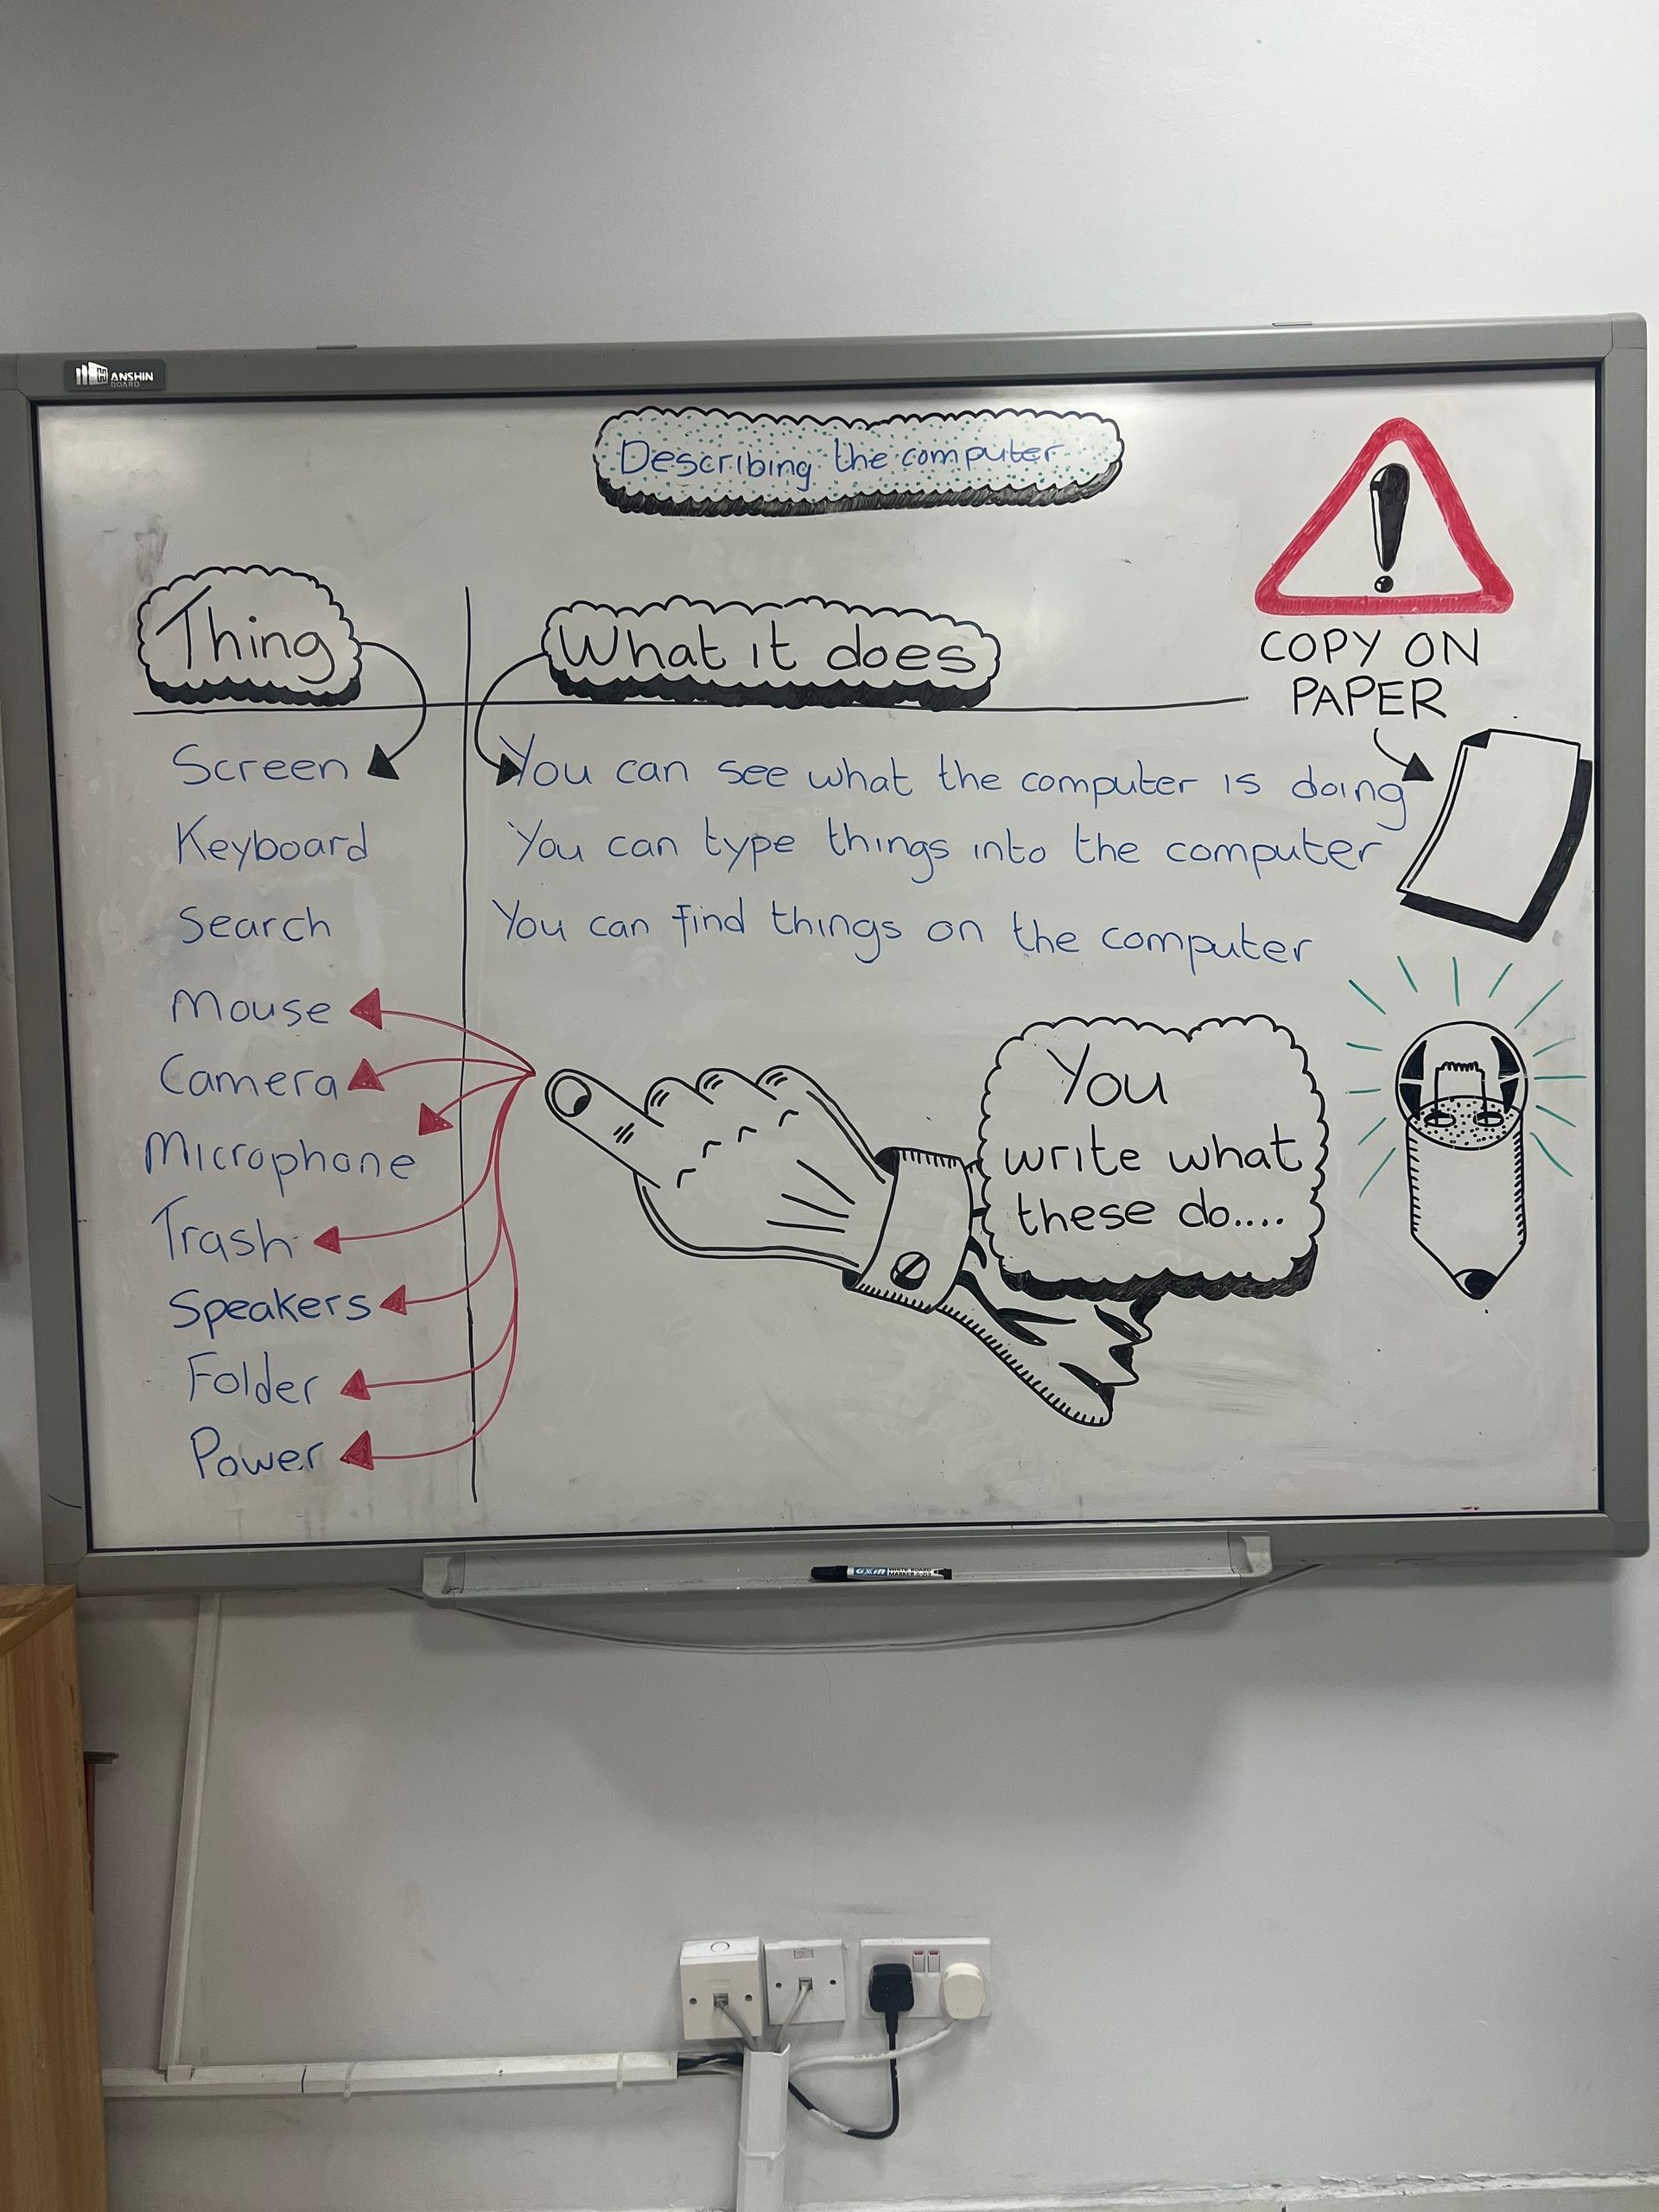 ANSHIN
BOARD
Describing the computer
Thing
What it does
COPY ON
PAPER
Screen You can see what the computer is doing
Keyboard You can type things into the computer
Search You can find things on the computer
Mouse
Camera
Microphone
Trash
Speakers
Folder
Power
You
write what
these do....
GXIN